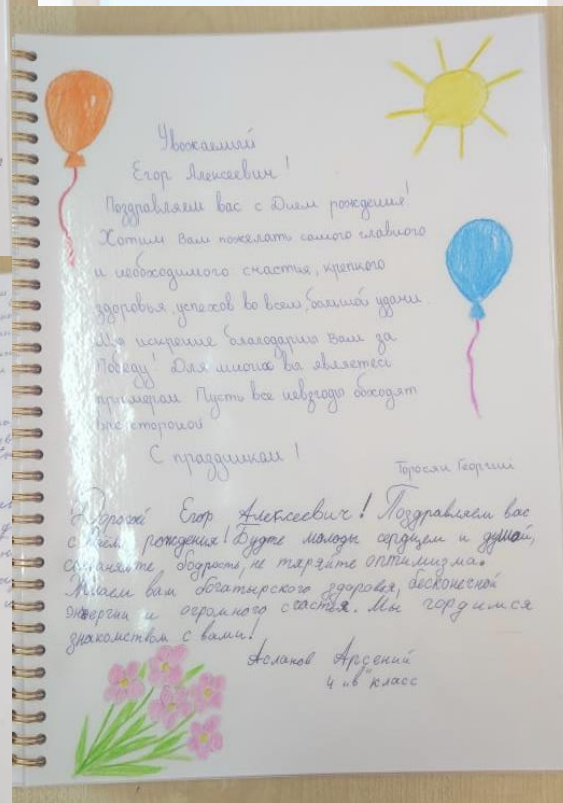 Уважаемый
Егор Алексеевич!
Поздравляем вас с Днем рождения!
Хотим Вам пожелать самого главного
и необходимого счастья, крепкого
здоровья, успехов во всем, большой удачи.
Мы искренне благодарны Вам за
Победу! Для многих вы являетесь
примером Пусть все невзгоды обходят
вас стороной
С праздником!
Торосян Георгий
Дорогой Егор Алексеевич! Поздравляем вас
с Днём рождения! Будте молоды сердцем и душой,
сохраняйте бодрость, не теряйте оптимизма.
Желаем вам богатырского здоровья, бесконечной
энергии и огромного счастья. Мы гордимся
знакомством с вами!
Асланов Арсений
4 "в" класс